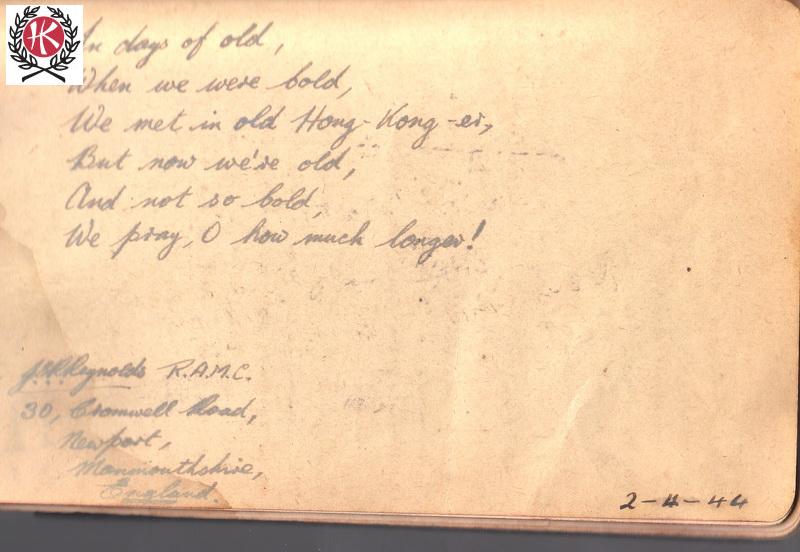 HK
In days of old,
When we were bold,
We met in old Hong-Kong-er,
But now we're old,
And not so bold,
We pray, O how much longer!
J.R. Reynolds R.A.M.C.
30, Cromwell Road,
Newport,
Monmouthshire,
England.
2-4-44